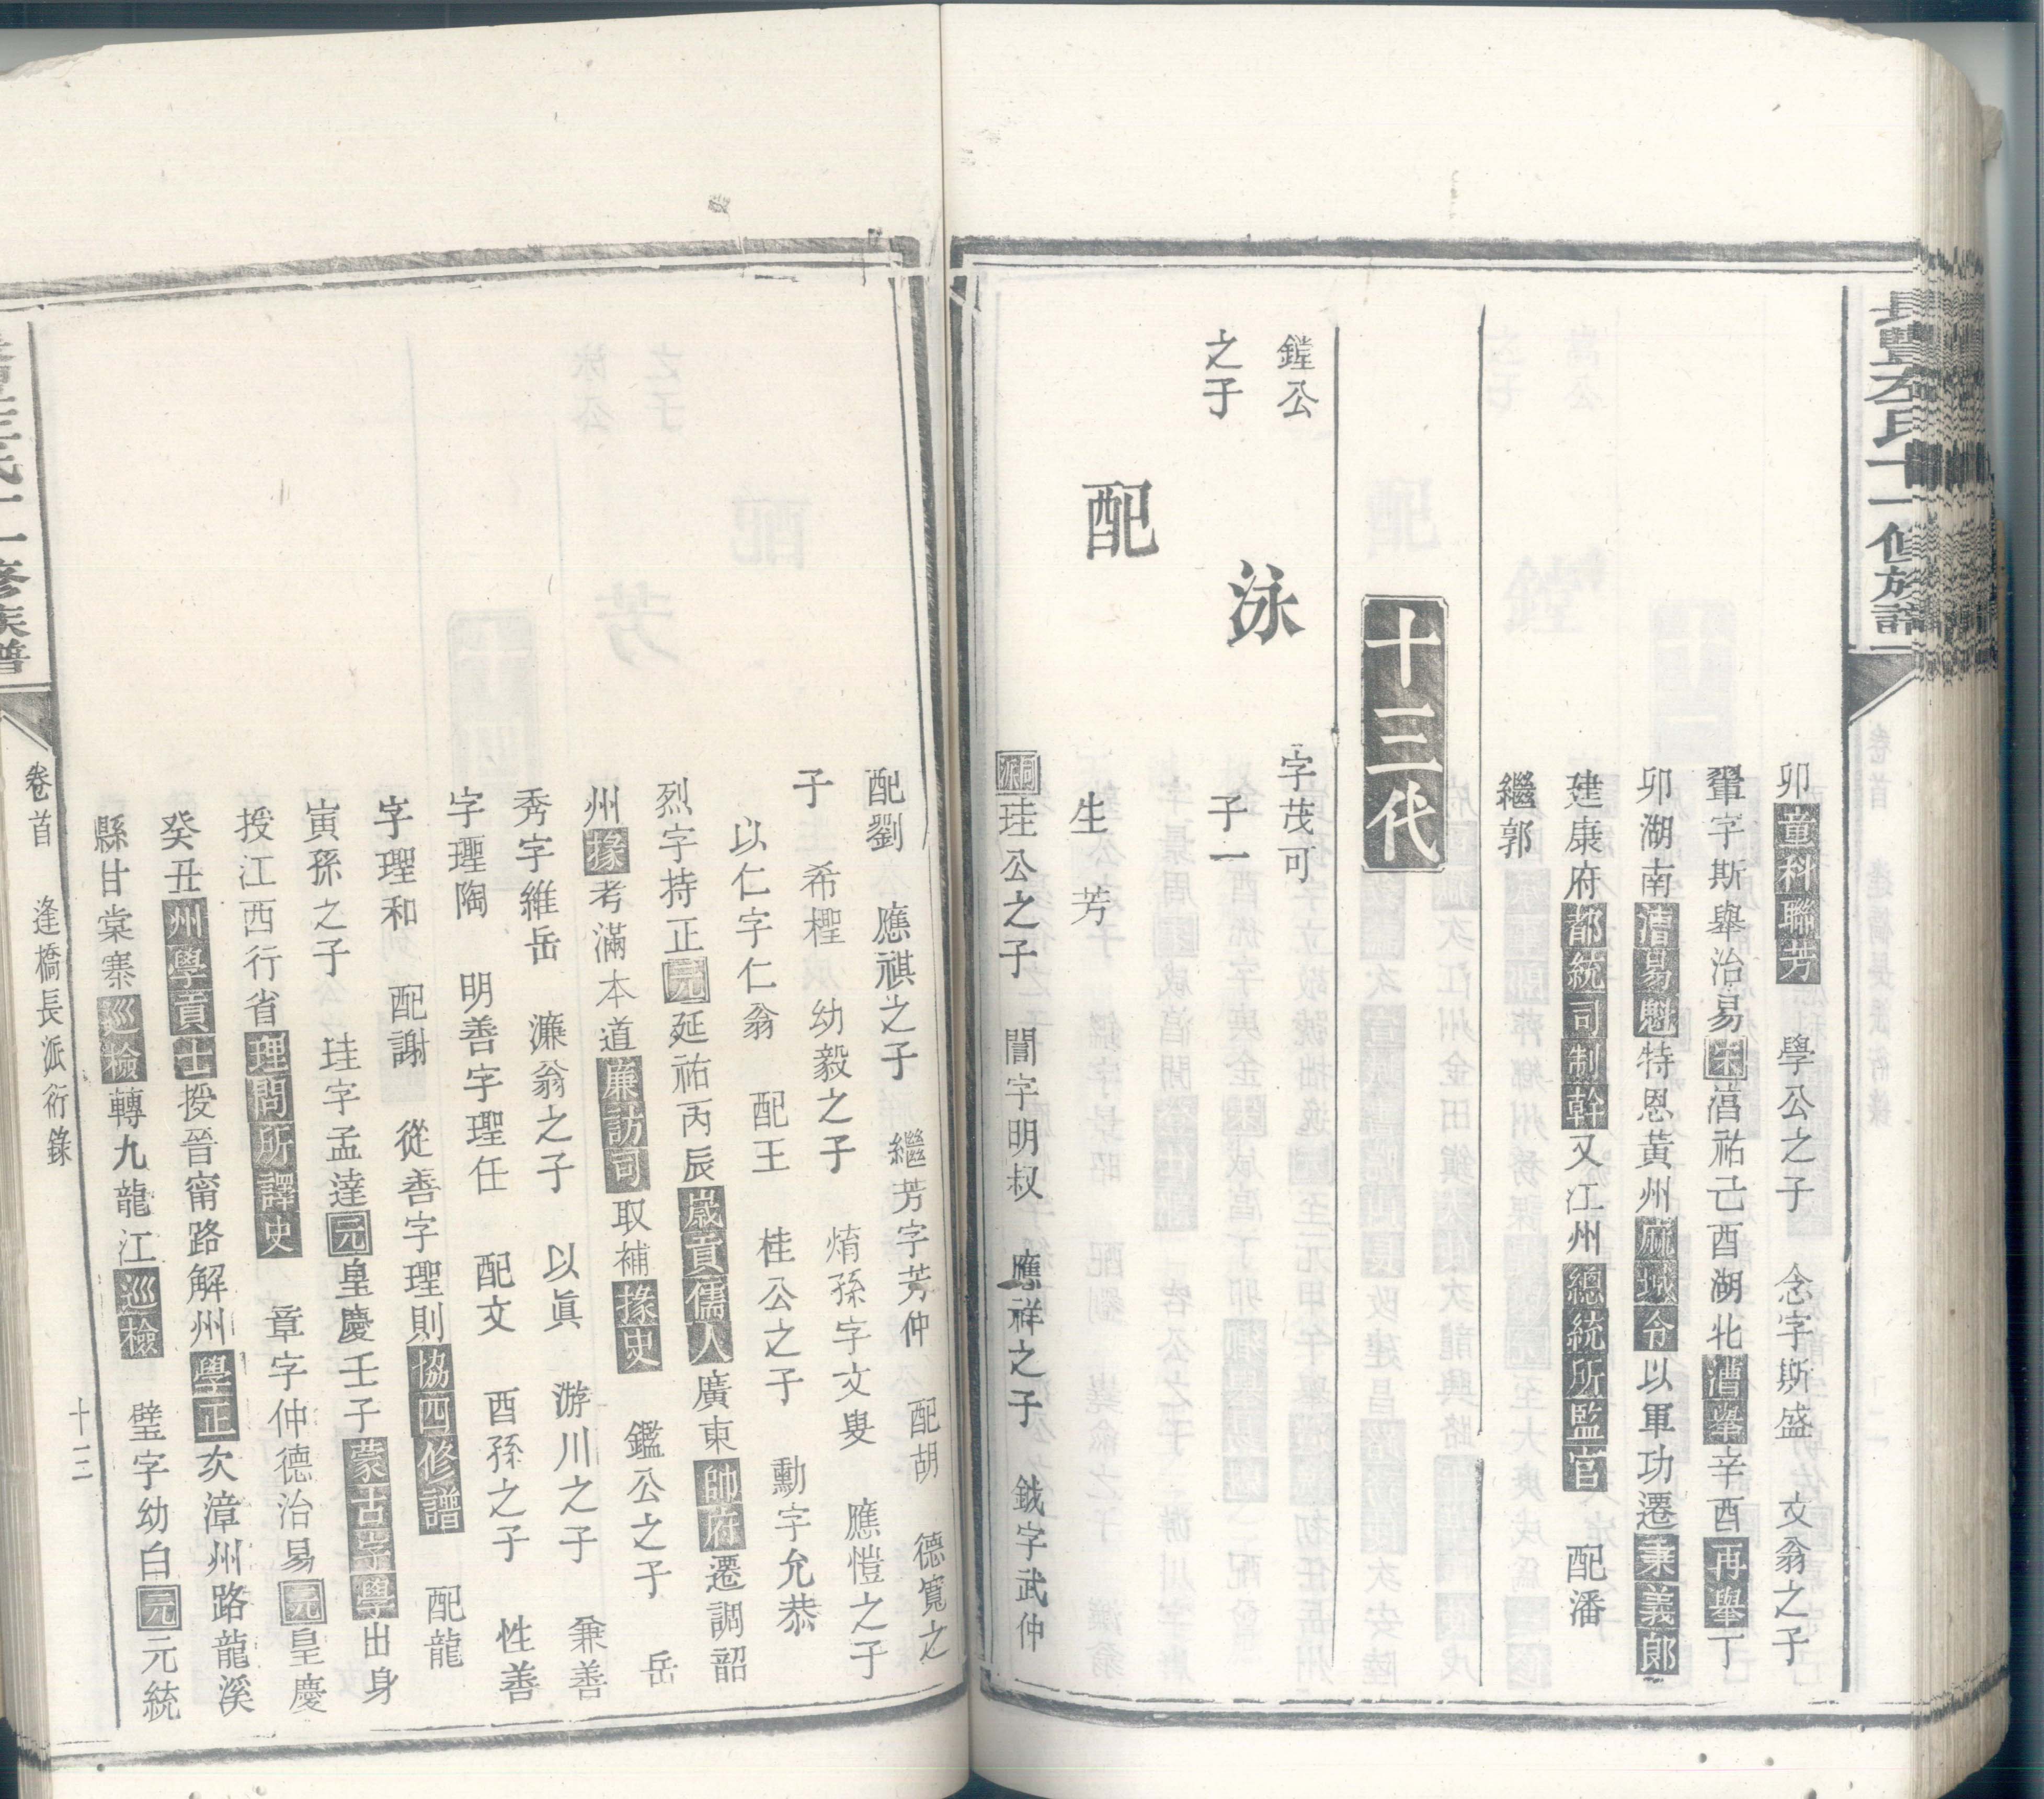 長豐左氏十一修族譜
卯童科聯芳 學公之子 念字斯盛 文翁之子
翬字斯舉治易宋淳祐己酉湖北漕舉辛酉再舉丁
卯湖南漕易魁特恩黃州麻城令以軍功遷秉義郎
建康府都統司制幹又江州總統所監官 配潘
繼郭
十三代
鏜公
之子
泳
字茂可
子一
配
生 芳
同派珪公之子 誾字明叔 應祥之子 鉞字武仲
配劉 應祺之子 繼芳字芳仲 配胡 德寬之
子 希樫 幼毅之子 焴孫字文叟 應愷之子
以仁字仁翁 配王 桂公之子 勳字允恭
烈字持正元延祐丙辰歲貢儒人廣東帥府遷調韶
州掾考滿本道廉訪司取補掾史 鑑公之子 岳
秀字維岳 濂翁之子 以眞 游川之子 兼善
字理陶 明善字理任 配文 酉孫之子 性善
字理和 配謝 從善字理則協四修譜 配龍
寅孫之子 珪字孟達元皇慶壬子蒙古字學出身
授江西行省理問所譯史 章字仲德治易元皇慶
癸丑州學貢士授晉甯路解州學正次漳州路龍溪
縣甘棠寨巡檢轉九龍江巡檢 璧字幼白元元統
卷首 逢橋長派衍錄 十三